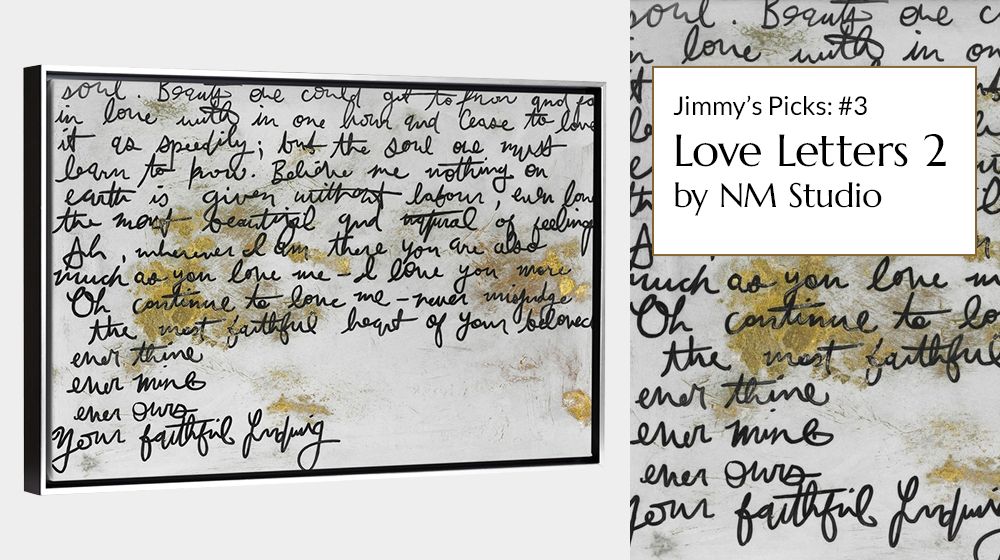 soul. Beauty one could get to know and fa
in love with in one hour and cease to love
it as speedily; but the soul one must
learn to know. Believe me nothing on
earth is given without labour, even love
the most beautiful and natural of feelings
Ah, wherever I am there you are also
much as you love me - I love you more
Oh continue to love me - never misjudge
the most faithful heart of your beloved
ever thine
ever mine
ever ours
Your faithful Ludwig
soul. Beauty one c
in love with in on
it
le
ea
A
much as you love m
Oh continue to lo
the most faithful
ever thine
ever mine
ever ours
Your faithful Ludwig
Jimmy's Picks: #3
Love Letters 2
by NM Studio